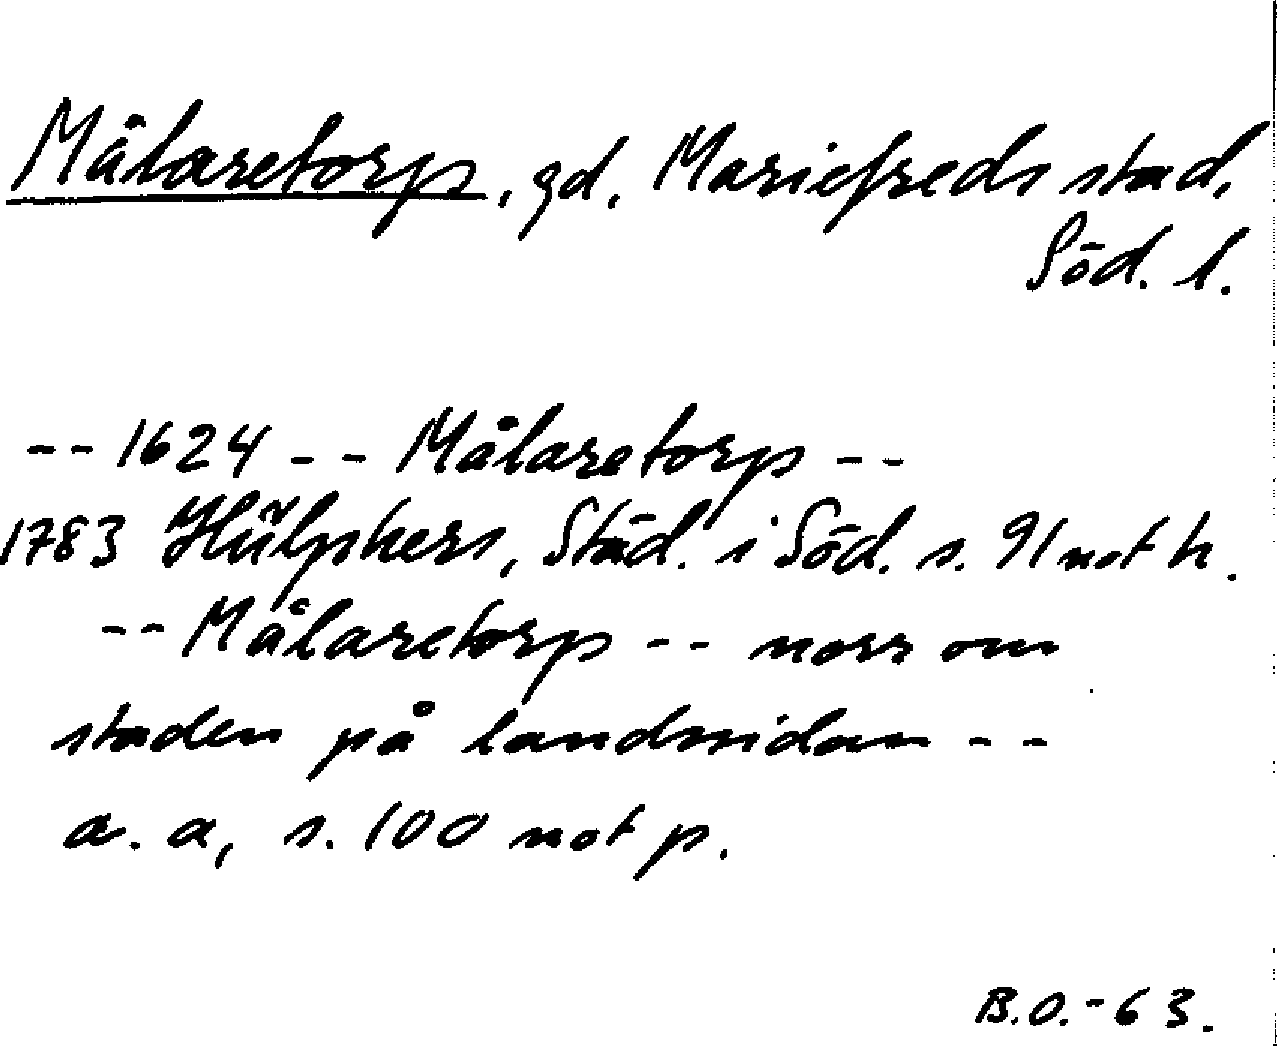 Målaretorp, gd, Mariefreds stad,
Söd. l.
-- 1624 -- Målaretorp --
1783 Hülphers, Städ. i Söd. s. 91 not h.
-- Målaretorp -- norr om
staden på landsidan --
a. a, s. 100 not p.
B.O.-63.